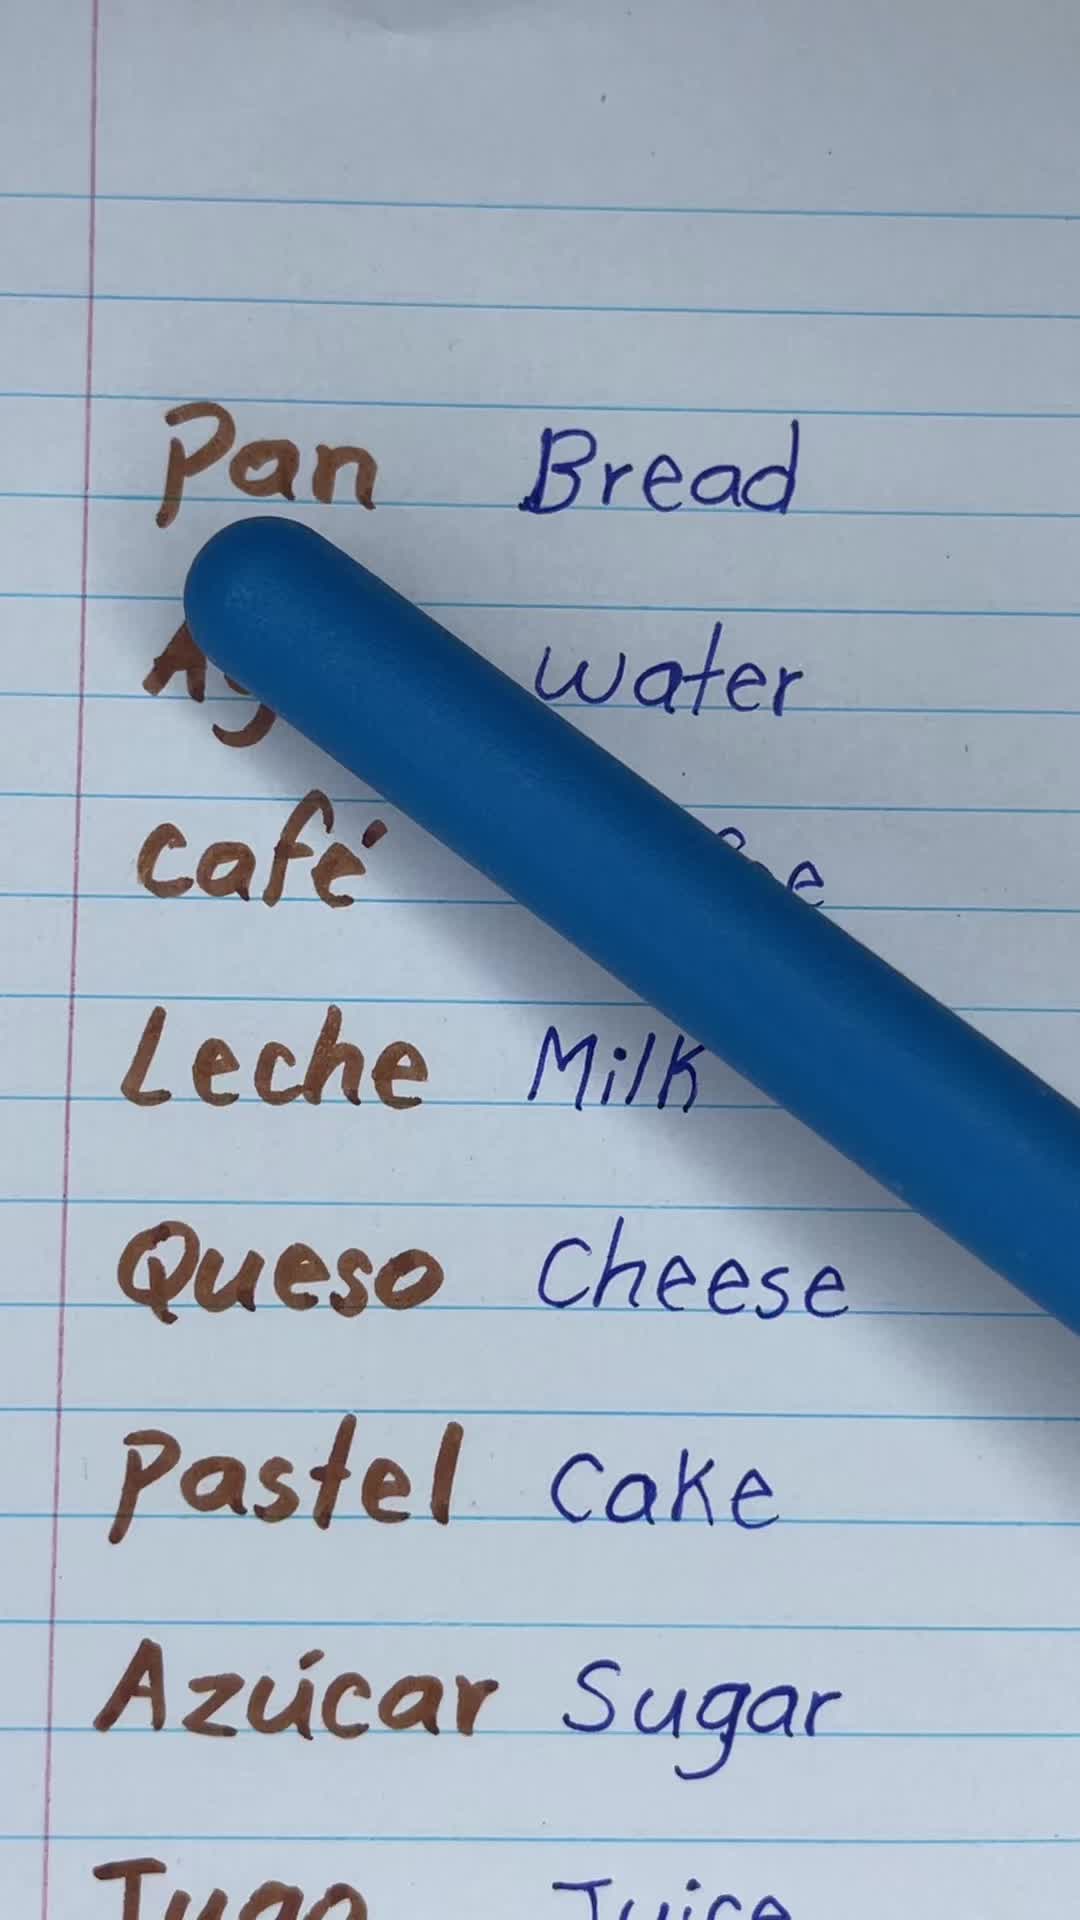 Pan Bread
water
café
Leche Milk
Queso Cheese
Pastel Cake
Azúcar Sugar
Jugo Juice